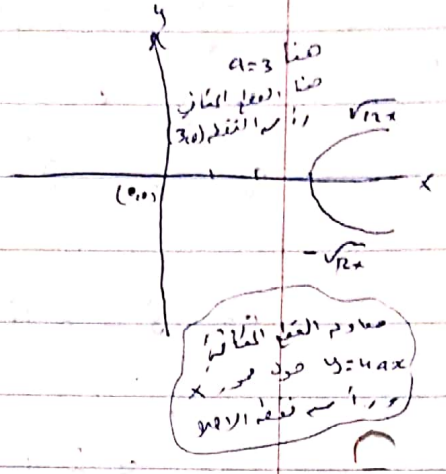 y
هنا a=3
هنا القطع المكافئ
رأسه النقطة (3,0
√12x
x
(0,0)
-√12x
معادلة القطع المكافئ
y=4ax حول محور x
ورأسه نقطة الاصل